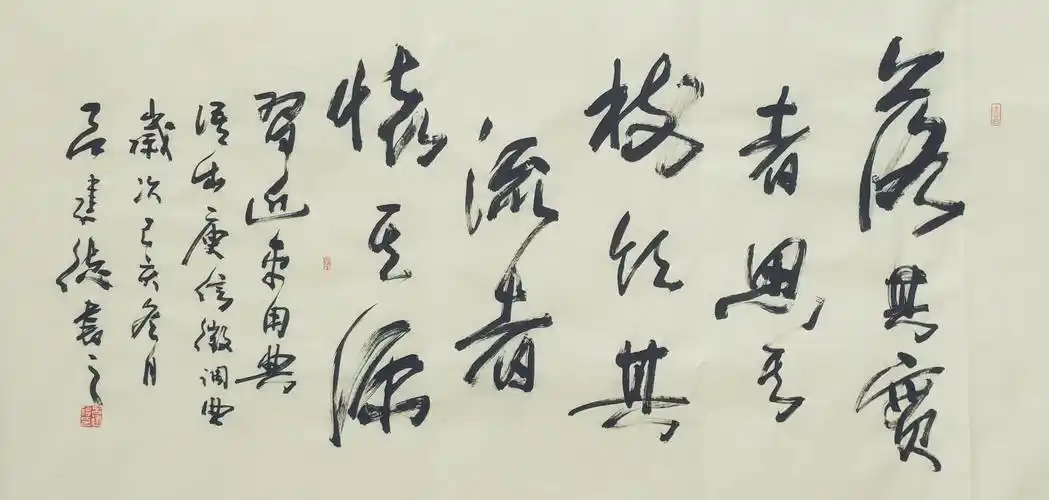 落其實
者思其
樹飲其
流者
懷其源
習近平用典
語出庾信徵調曲
歲次己亥冬月
吕建德書之